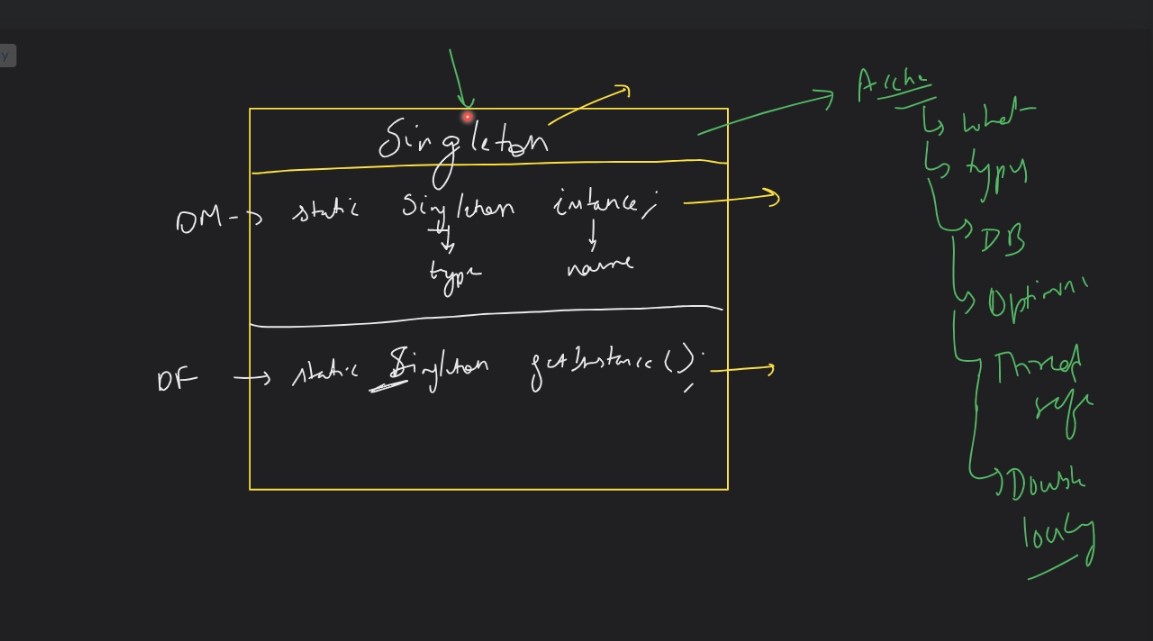 y
Singleton
DM -> static Singleton intance;
type name
DF -> static Singleton getInstance();
what
type
DB
Optimi
Thread
safe
Double